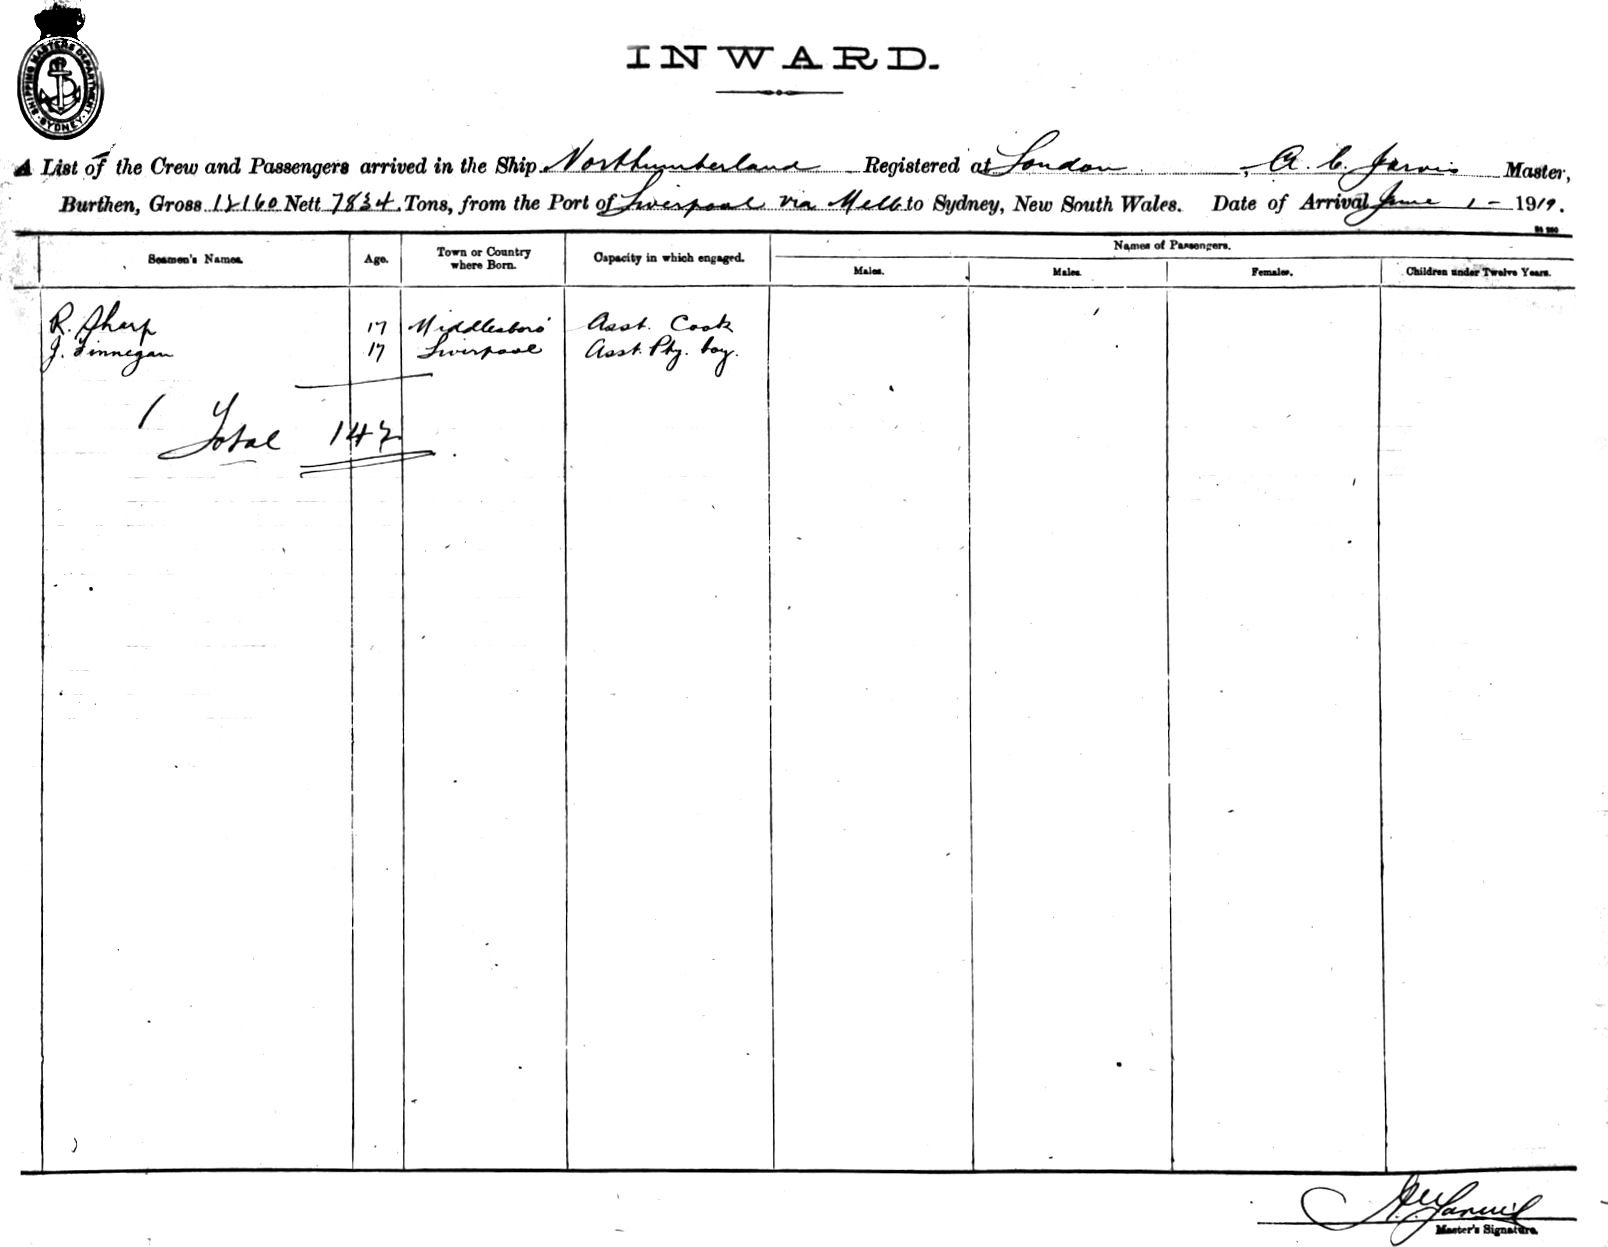 SHIPPING MASTERS DEPARTMENT. SYDNEY.
INWARD.
A List of the Crew and Passengers arrived in the Ship Northumberland Registered at London, A. C. Jarvis Master,
Burthen, Gross 12160 Nett 7834 Tons, from the Port of Liverpool via Melb to Sydney, New South Wales. Date of Arrival June 1 - 1919.
Names of Passengers.
Seamen's Names. Age. Town or Country where Born. Capacity in which engaged. Males. Males. Females. Children under Twelve Years.
R. Sharp 17 Middlesboro' Asst. Cook
J. Finnegan 17 Liverpool Asst. Pty. boy.
Total 147
Master's Signature.